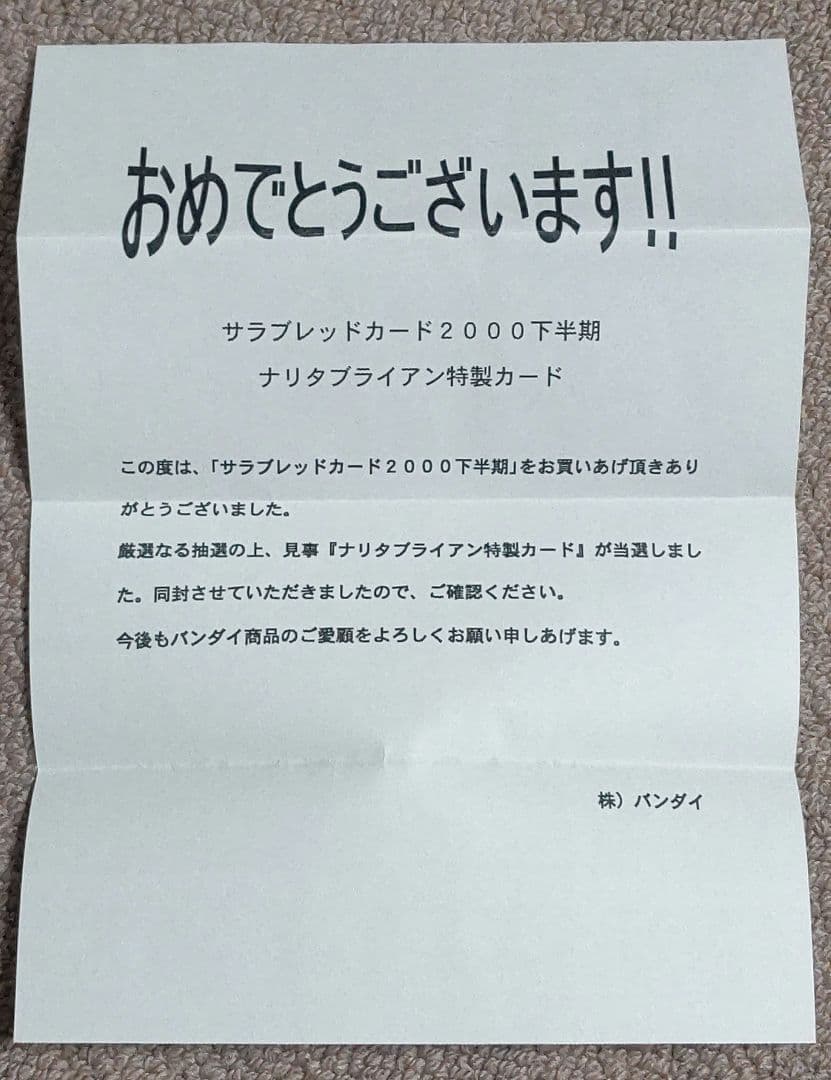 おめでとうございます!!
サラブレッドカード２０００下半期
ナリタブライアン特製カード
この度は、「サラブレッドカード２０００下半期」をお買いあげ頂きあり
がとうございました。
厳選なる抽選の上、見事『ナリタブライアン特製カード』が当選しまし
た。同封させていただきましたので、ご確認ください。
今後もバンダイ商品のご愛願をよろしくお願い申しあげます。
株）バンダイ